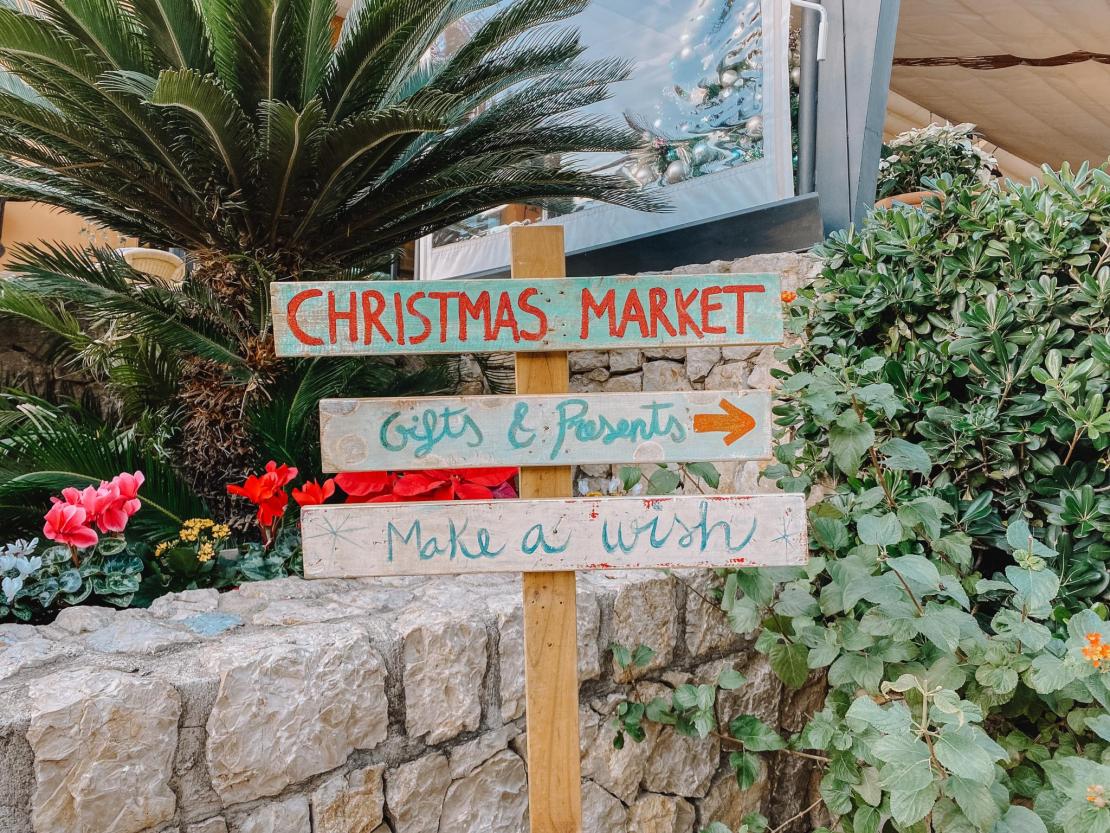 CHRISTMAS MARKET
Gifts & Presents →
Make a wish